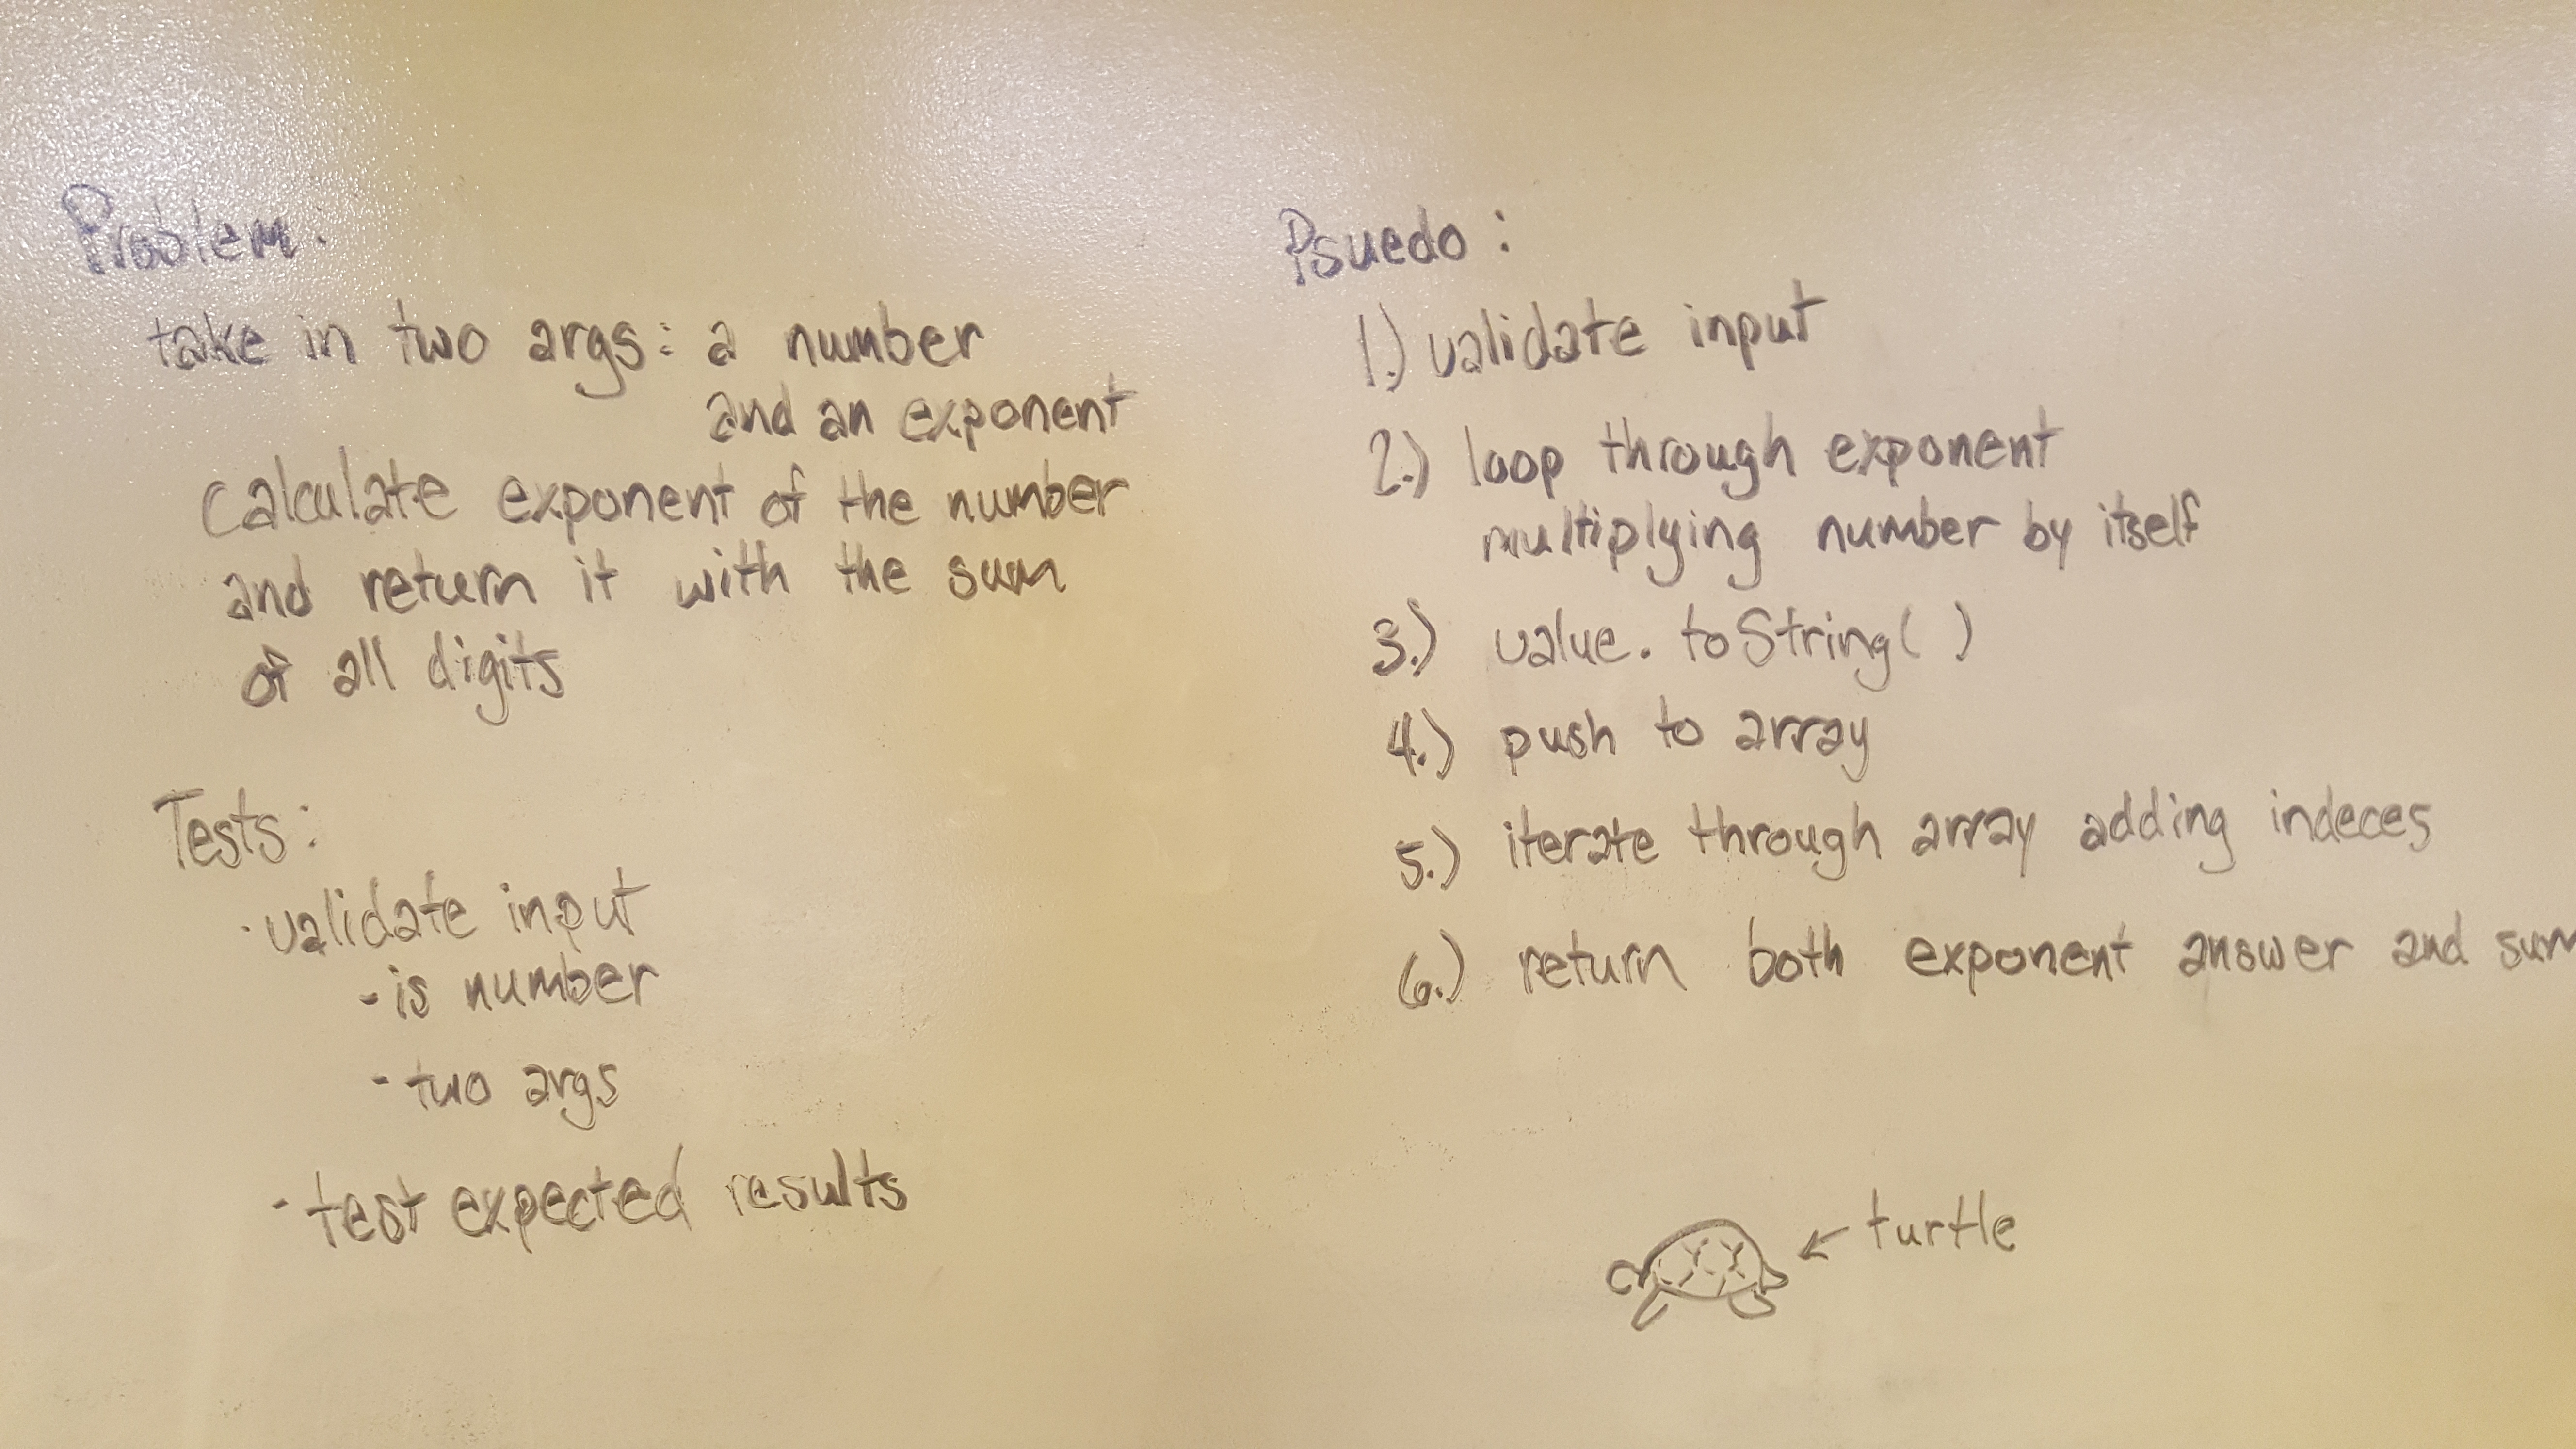 Problem:
take in two args: a number
and an exponent
Calculate exponent of the number
and return it with the sum
of all digits
Tests:
· validate input
- is number
- two args
- test expected results
Psuedo:
1.) validate input
2.) loop through exponent
multiplying number by itself
3.) value.toString( )
4.) push to array
5.) iterate through array adding indeces
6.) return both exponent answer and sum
← turtle